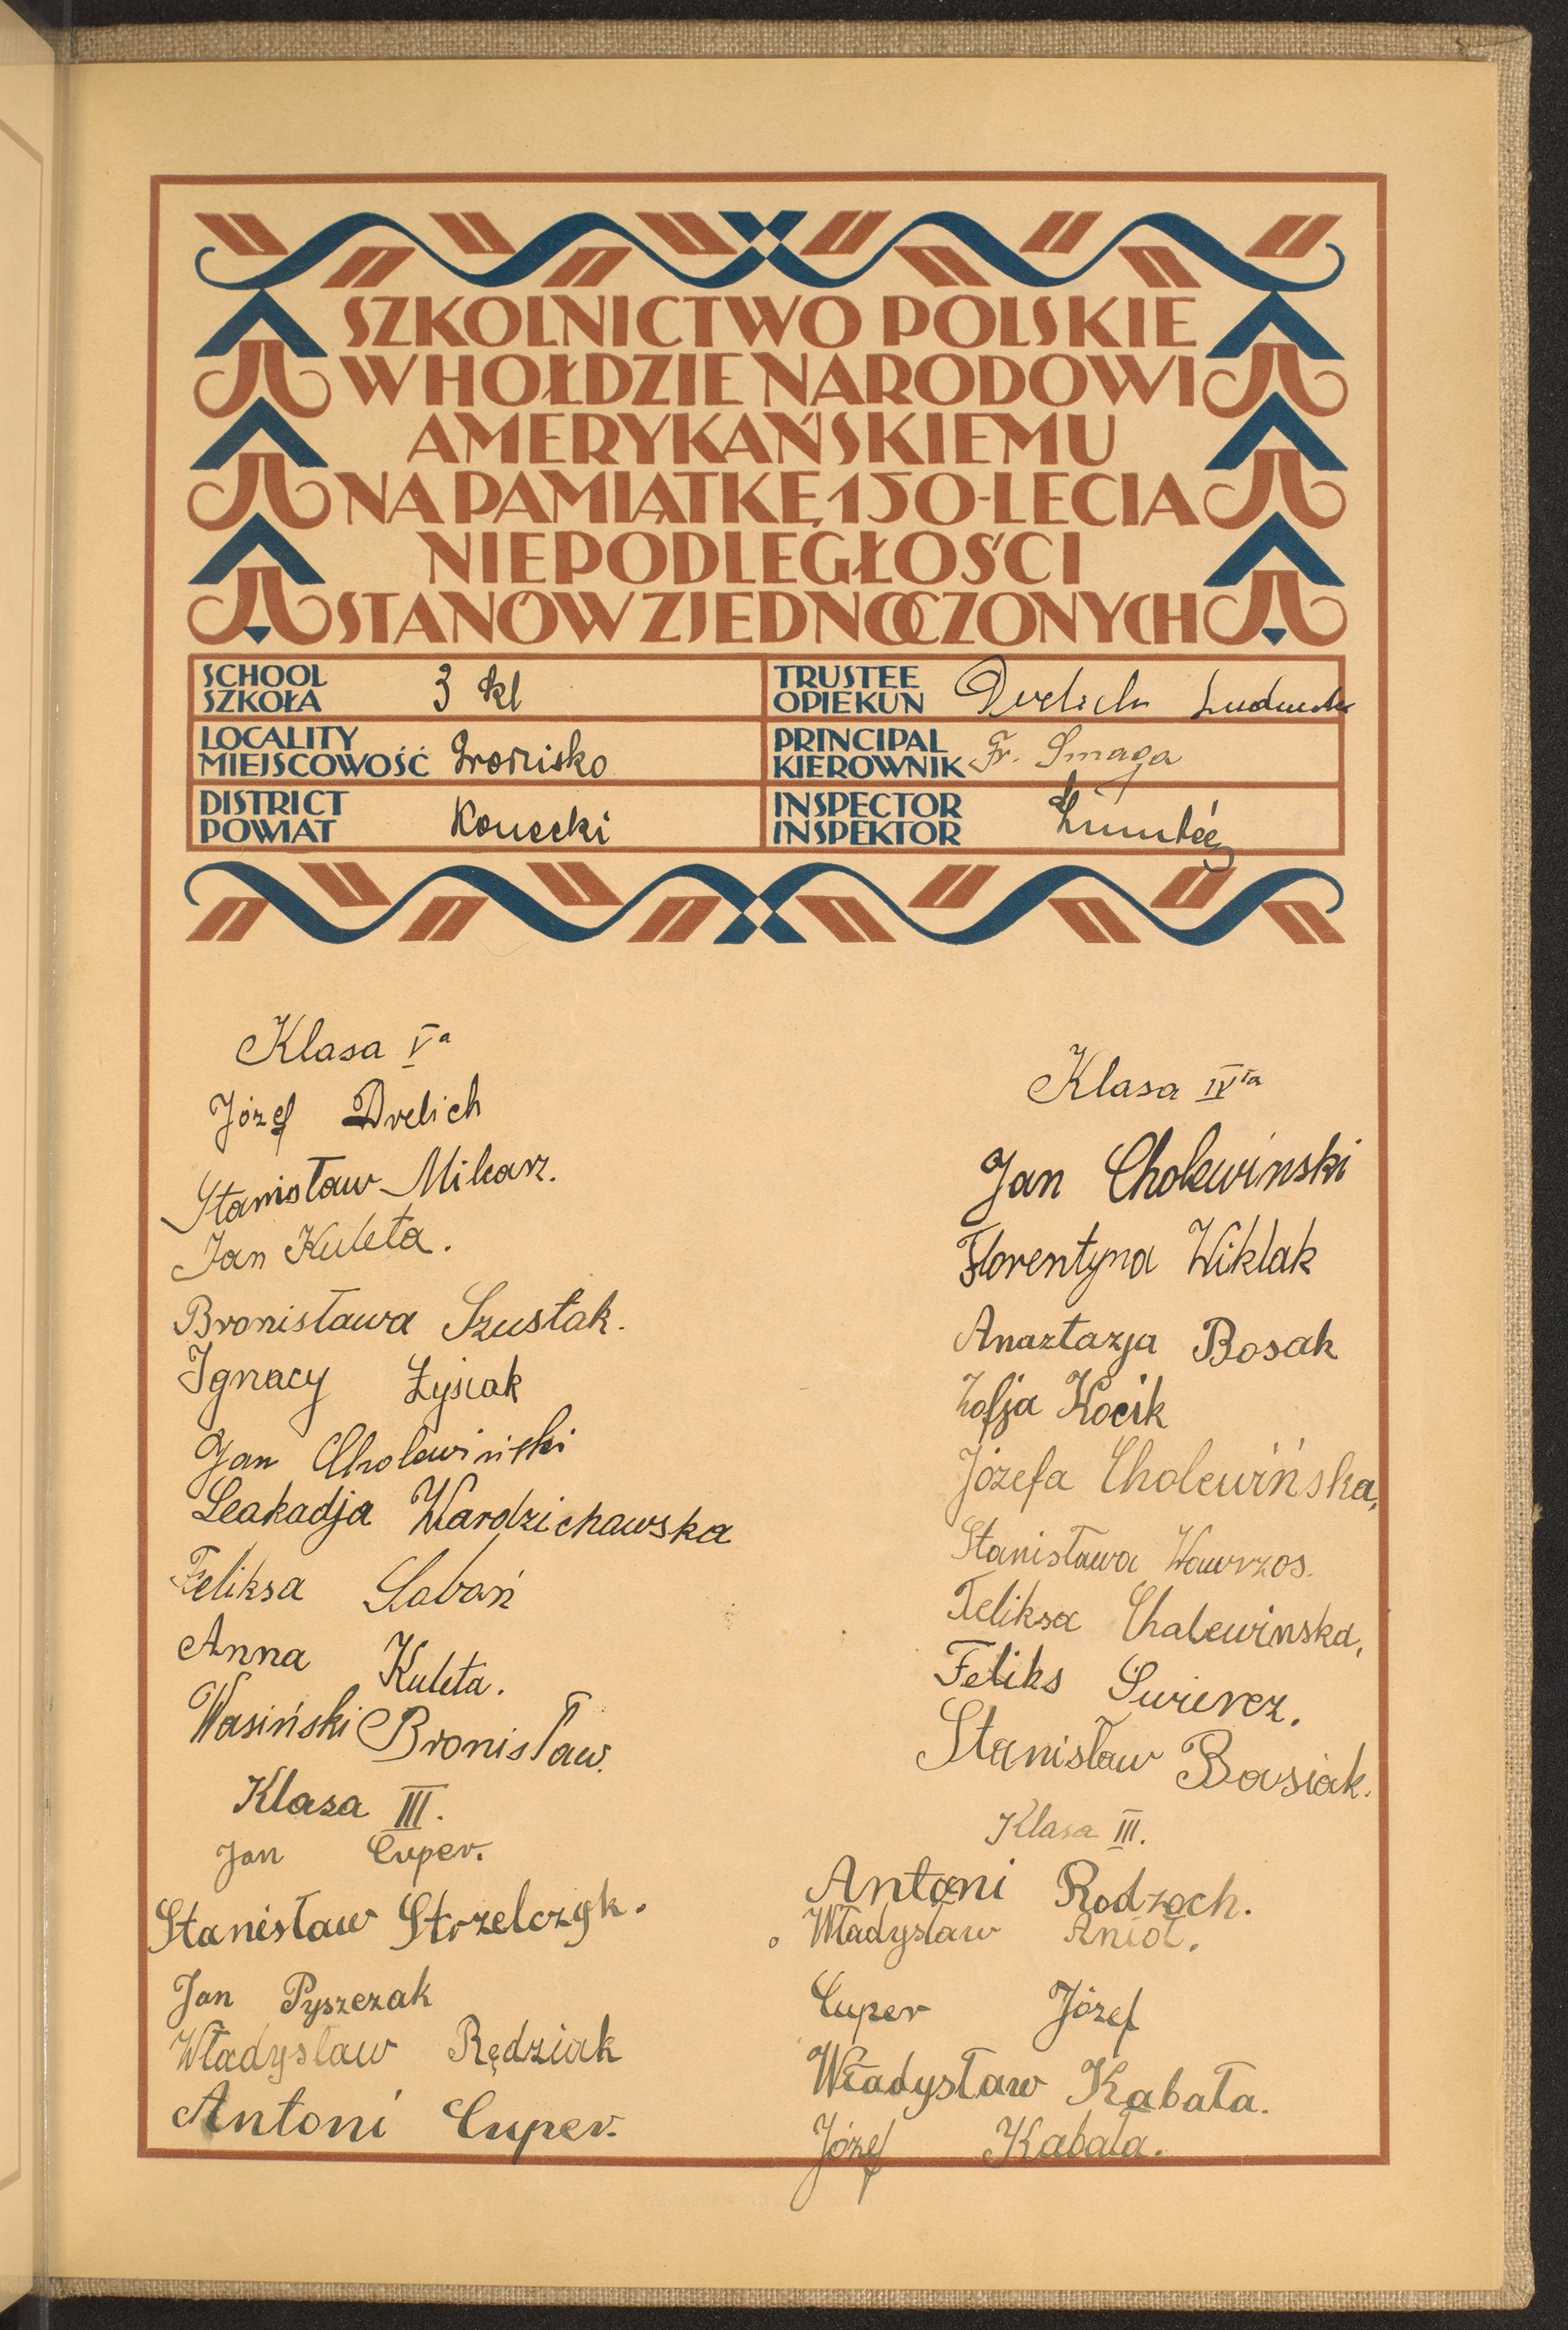 SZKOLNICTWO POLSKIE
W HOŁDZIE NARODOWI
AMERYKAŃSKIEMU
NA PAMIĄTKĘ 150-LECIA
NIEPODLEGŁOŚCI
STANÓW ZJEDNOCZONYCH
SCHOOL
SZKOŁA 3 kl
TRUSTEE
OPIEKUN Drelich
LOCALITY
MIEJSCOWOŚĆ
PRINCIPAL
KIEROWNIK Fr. Smaga
DISTRICT
POWIAT Konecki
INSPECTOR
INSPEKTOR
Klasa Va
Józef Drelich
Stanisław Milcarz.
Jan Kuleta.
Bronisława Szustak.
Ignacy Łysiak
Jan Cholewiński
Leakadja Wardzichawska
Feliksa Sabań
Anna Kuleta.
Wasiński Bronisław.
Klasa III.
Jan Cuper.
Stanisław Strzelczyk.
Jan Pyszczak
Władysław Rędziak
Antoni Cuper.
Klasa IVta
Jan Cholewiński
Florentyna Wiklak
Anaztazja Bosak
Zofja Kocik
Józefa Cholewińska,
Stanisława Wawrzos.
Feliksa Chalewinska,
Feliks
Stanisław Basiak.
Klasa III.
Antoni Rodzoch.
Władysław Anioł.
Cuper Józef
Władysław Kabała.
Józef Kabała.